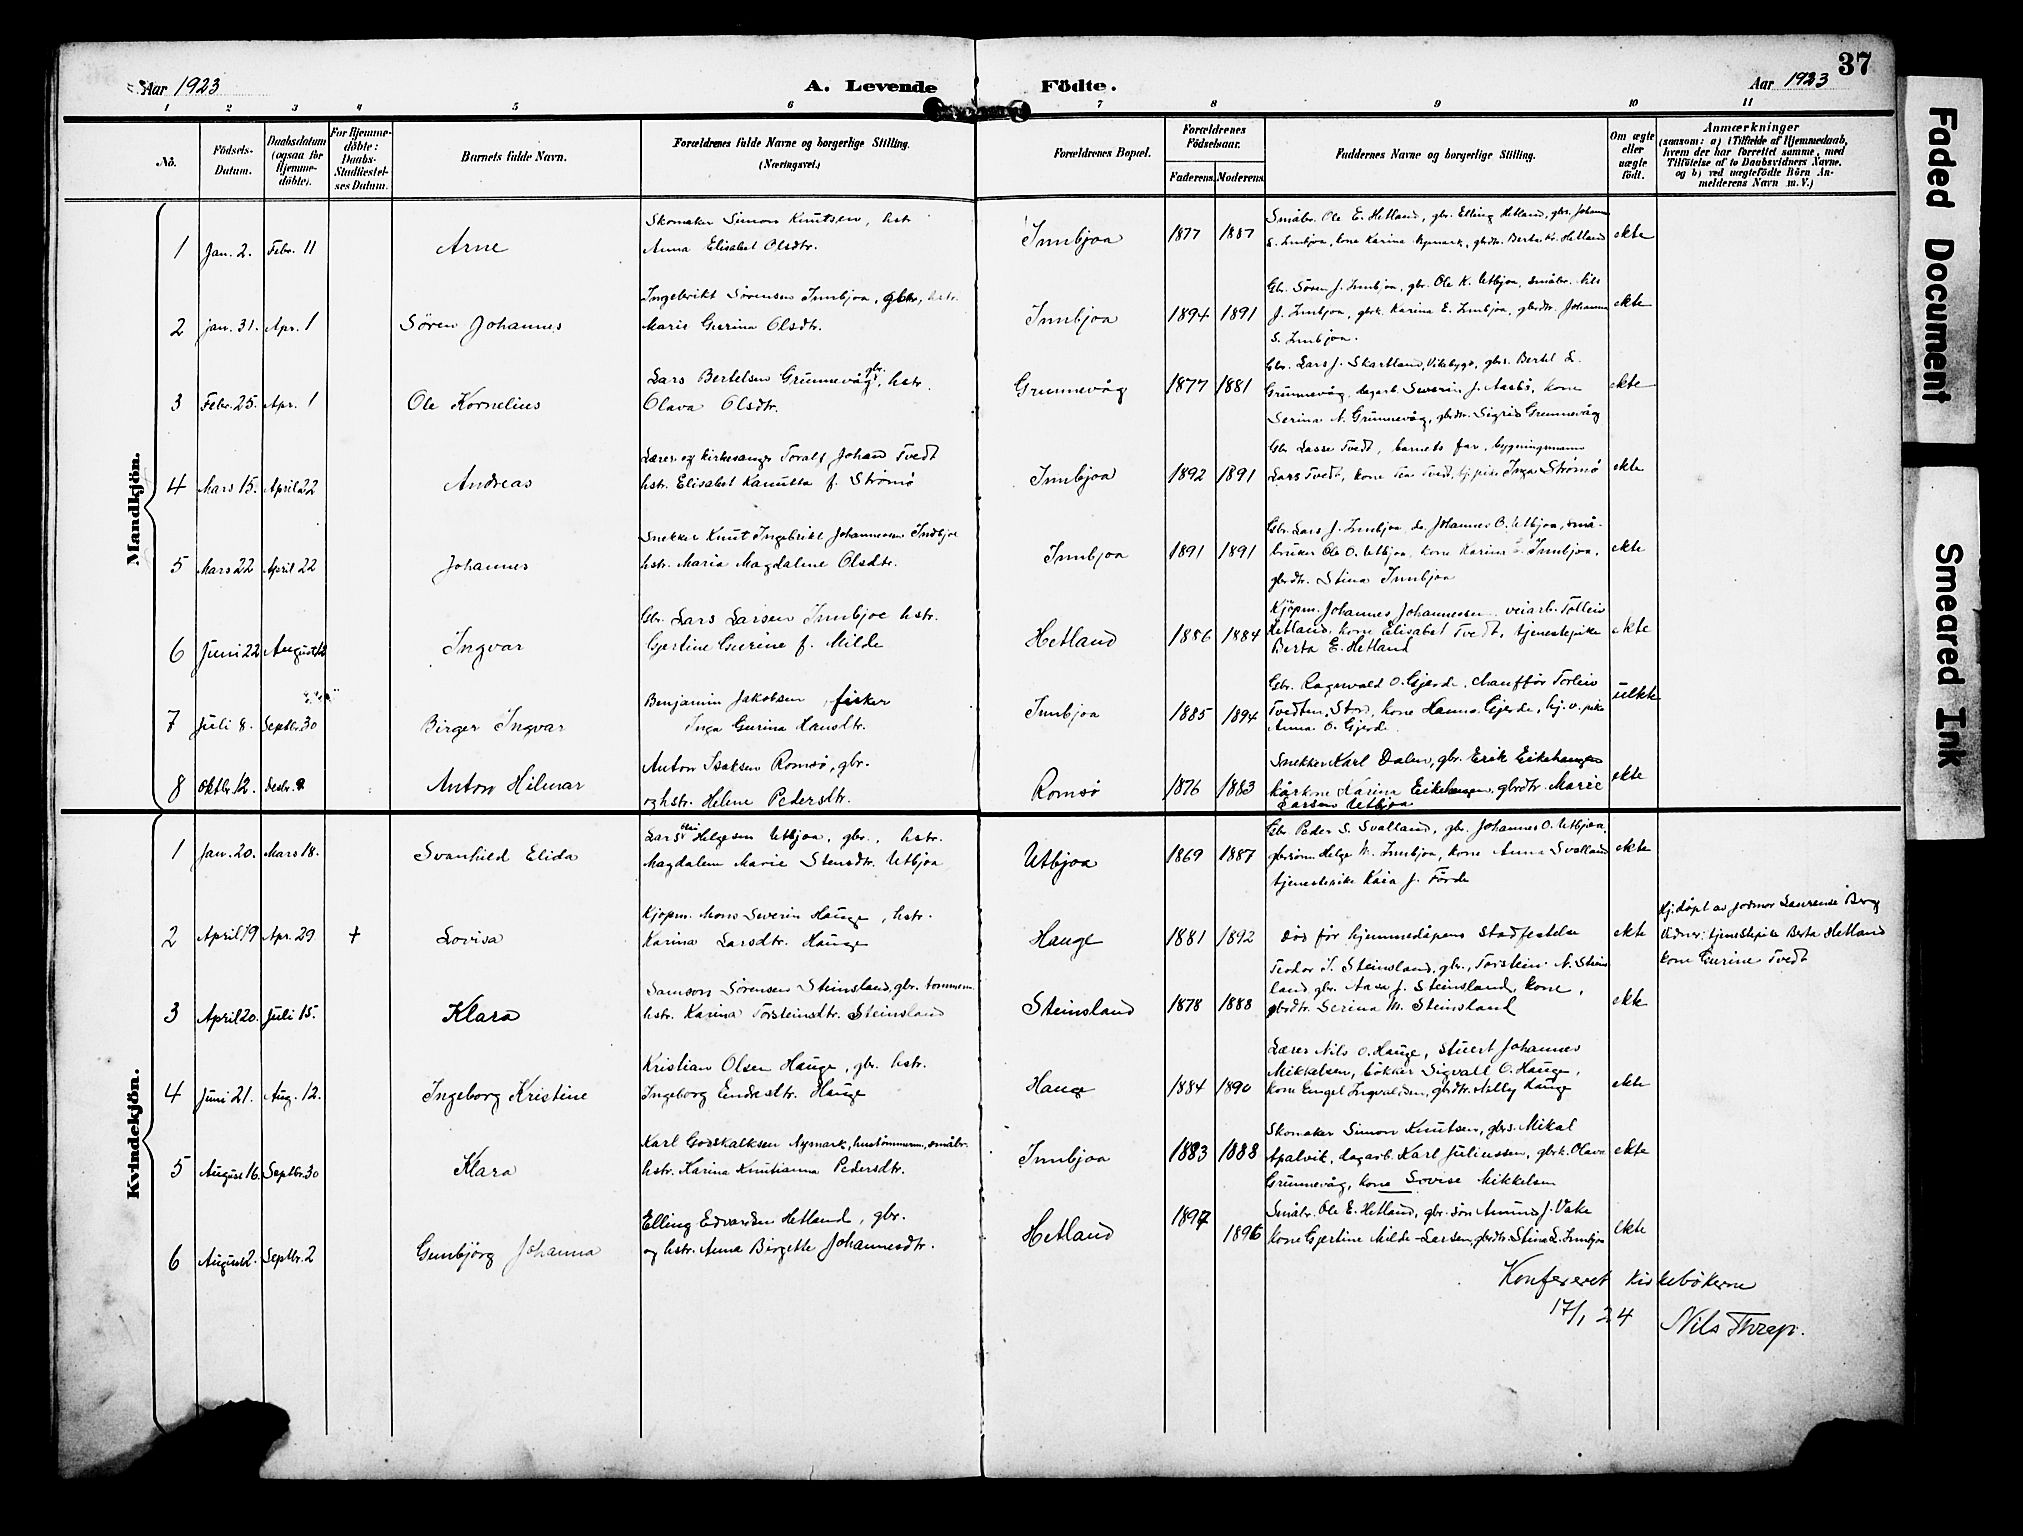 37
Aar 1923
A. Levende Födte.
Aar 1923
1 2 3 4 5 6 7 8 9 10 11
Nô.
Födsels-Datum.
Daabsdatum (ogsaa for Hjemme-döbte).
For Hjemme-döbte: Daabs-Stadfæstel-ses Datum.
Barnets fulde Navn.
Forældrenes fulde Navne og borgerlige Stilling. (Næringsvei.)
Forældrenes Bopæl.
Forældrenes Födselsaar.
Faderens. Moderens.
Faddernes Navne og borgerlige Stilling.
Om ægte eller uægte födt.
Anmærkninger
(saasom: a) i Tilfælde af Hjemmedaab, hvem der har forrettet samme, med Tilföielse af to Daabsvidners Navne, og b) ved uægtefödte Börn An-melderens Navn m. V.)
Mandkjön.
Skomaker Simon Knutsen, hstr
Småbr. Ole E. Hetland, gbr. Elling Hetland, gbs. Johann
1 Jan. 2. Febr. 11 Arne Anna Elisabet Olsdtr. Innbjoa 1877 1887 S. Innbjoa, kone Karina Nymark, gbrdtr. Berta Kr. Hetland ekte
Ingebrikt Sörensen Innbjoa, gbr, hstr.
Gbr. Sören J. Innbjoa, gbr. Ole K. Utbjoa, småbr. Nils
2 jan. 31. Apr. 1 Sören Johannes Marie Gurina Olsdtr. Innbjoa 1894 1891 J. Innbjoa, gbrk. Karina E. Innbjoa, gbrdtr. Johanna ekte
S. Innbjoa.
Lars Bertelsen Grunnevåg, gbr. hstr.
Gbr. Lars J. Skartland, Vikebygd, gbrs. Bertel L.
3 Febr. 25. Apr. 1 Ole Kornelius Olava Olsdtr. Grunnevåg 1877 1881 Grunnevåg, dagarb. Severin J. Aasbö, kone ekte
Serina N. Grunnevåg, gbrdtr. Sigrid Grunnevåg
Lærer og kirkesanger Toralf Johan Tvedt
Gbr Lasse Tvedt, barnets far, bygningsmann
4 Mars 15. April 22 Andreas hstr. Elisabet Kanutta f. Strömö Innbjoa 1892 1891 Lars Tvedt, kone Tea Tvedt, tj.pike Inga Strömö ekte
Snekker Knut Ingebrikt Johannessen Indbjoe
Gbr. Lars J. Innbjoa, do. Johannes O. Utbjoa, små-
5 Mars 22 April 22 Johannes hstr. Maria Magdaline Olsdtr. Innbjoa 1891 1891 bruker Ole O. Utbjoa, kone Karina E. Innbjoa, ekte
gbrdtr. Stina Innbjoa
Gbr. Lars Larsen Innbjoe hstr.
Kjöpm. Johannes Johannessen, veiarb. Tollein
6 Juni 22 August 12 Ingvar Gjertine Gurine f. Milde Hetland 1886 1884 Hetland, kone Elisabet Tvedt, tjenestepike ekte
Berta E. Hetland
Benjamin Jakobsen, fisker
Gbr. Ragnvald O. Gjerde, chaufför Torleiv
7 Juli 8. Septbr. 30 Birger Ingvar Inga Gurina Hansdtr. Innbjoa 1885 1894 Tvedten, Stord, kone Hanna Gjerde, hj.v. pike uekte
Anna O. Gjerde
Anton Isaksen Romsö, gbr.
Snekker Karl Dalen, gbr. Erik Eikehaugen
8 Oktbr. 12. Desbr. 9 Anton Hilmar og hstr. Helene Pedersdtr. Romsö 1876 1883 kårkone Karina Eikehaugen, gbrdtr. Marie ekte
Larsen Utbjoa
Kvindekjön.
Lars Helgesen Utbjoa, gbr., hstr.
Gbr. Peder S. Svalland, gbr. Johannes O. Utbjoa,
1 Jan. 20. Mars 18. Svanhild Elida Magdalene Marie Stensdtr. Utbjoa Utbjoa 1869 1887 gbrsönn Helge M. Innbjoa, kone Anna Svalland ekte
tjenestepike Kaia J. Förde
Kjöpm. Mons Severin Hauge, hstr.
Hj.döpt av jordmor Laurense Berg
2 April 19 Apr. 29 + Lovisa Karina Larsdtr. Hauge Hauge 1881 1892 Död för hjemmedåpens stadfestelse ekte Vidner: tjenestepike Berta Hetland
kone Gurine Tvedt
Samson Sörensen Steinsland, gbr. tömmerm.
Teodor S. Steinsland, gbr., Torstein N. Steins
land gbr. Aasa J. Steinsland, kone,
3 April 20. Juli 15. Klara hstr. Karina Torsteinsdtr. Steinsland Steinsland 1878 1888 gbrdtr. Serina M. Steinsland ekte
Kristian Olsen Hauge, gbr. hstr.
Lærer Nils O. Hauge, Stuert Johannes
Mikkelsen, bökker Sigvall O. Hauge,
4 Juni 21. Aug. 12. Ingeborg Kristine Ingeborg Endresdtr. Hauge Hauge 1884 1890 kone Engel Ingvaldsen, gbrdtr. Milly Hauge ekte
Karl Godskalksen Nymark, hustömmerm., småbr.
Skomaker Simon Knutsen, gbrs. Mikal
5 August 16. Septbr. 30 Klara hstr. Karina Knutianna Pedersdtr. Innbjoa 1883 1888 Apalvik, dagarb. Karl Juliussen, gbrk. Olava ekte
Grunnevåg, kone Lovise Mikkelsen
Elling Edvardsen Hetland, gbr.
Småbr. Ole E. Hetland, gbr. sön Amund J. Vake
6 August 2. Septbr. 2 Gunbjörg Johanna og hstr. Anna Birgette Johannesdtr. Hetland 1897 1896 kone Gjertine Milde-Larsen, gbrdtr. Stina L. Innbjoa ekte
Konfereret kirkebökerne
17/1 24 Nils Thrap.
Faded Document
Smeared Ink